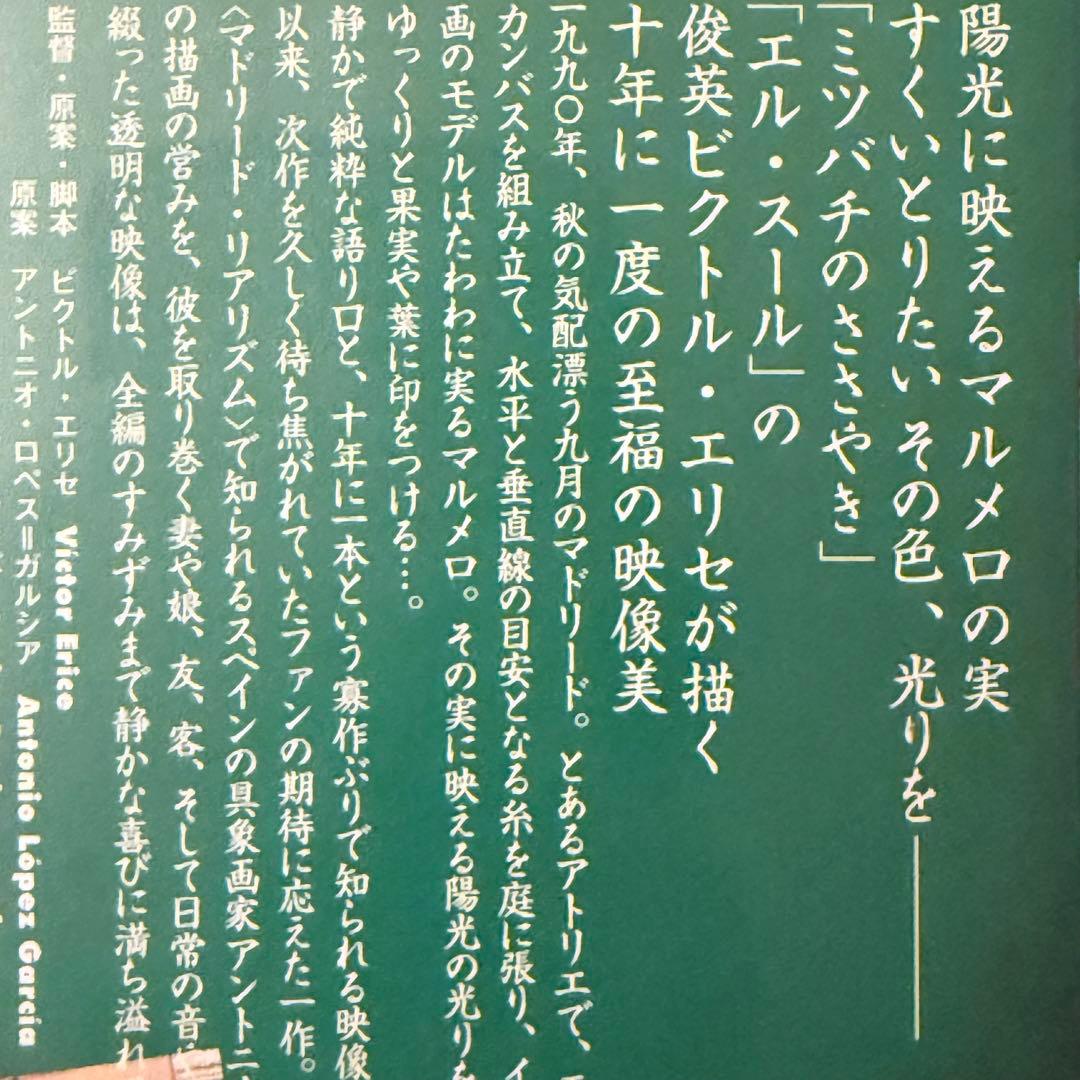 陽光に映えるマルメロの実
すくいとりたいその色、光りを――
「ミツバチのささやき」
「エル・スール」の
俊英ビクトル・エリセが描く
十年に一度の至福の映像美
一九九〇年、秋の気配漂う九月のマドリード。とあるアトリエで、
カンバスを組み立て、水平と垂直線の目安となる糸を庭に張り、イ
画のモデルはたわわに実るマルメロ。その実に映える陽光の光りを
ゆっくりと果実や葉に印をつける…。
静かで純粋な語り口と、十年に一本という寡作ぶりで知られる映像
以来、次作を久しく待ち焦がれていたファンの期待に応えた一作。
〈マドリード・リアリズム〉で知られるスペインの具象画家アントニオ
の描画の営みを、彼を取り巻く妻や娘、友、客、そして日常の音に
綴った透明な映像は、全編のすみずみまで静かな喜びに満ち溢れ
監督・原案・脚本 ビクトル・エリセ Victor Erice
原案 アントニオ・ロペス=ガルシア Antonio López García